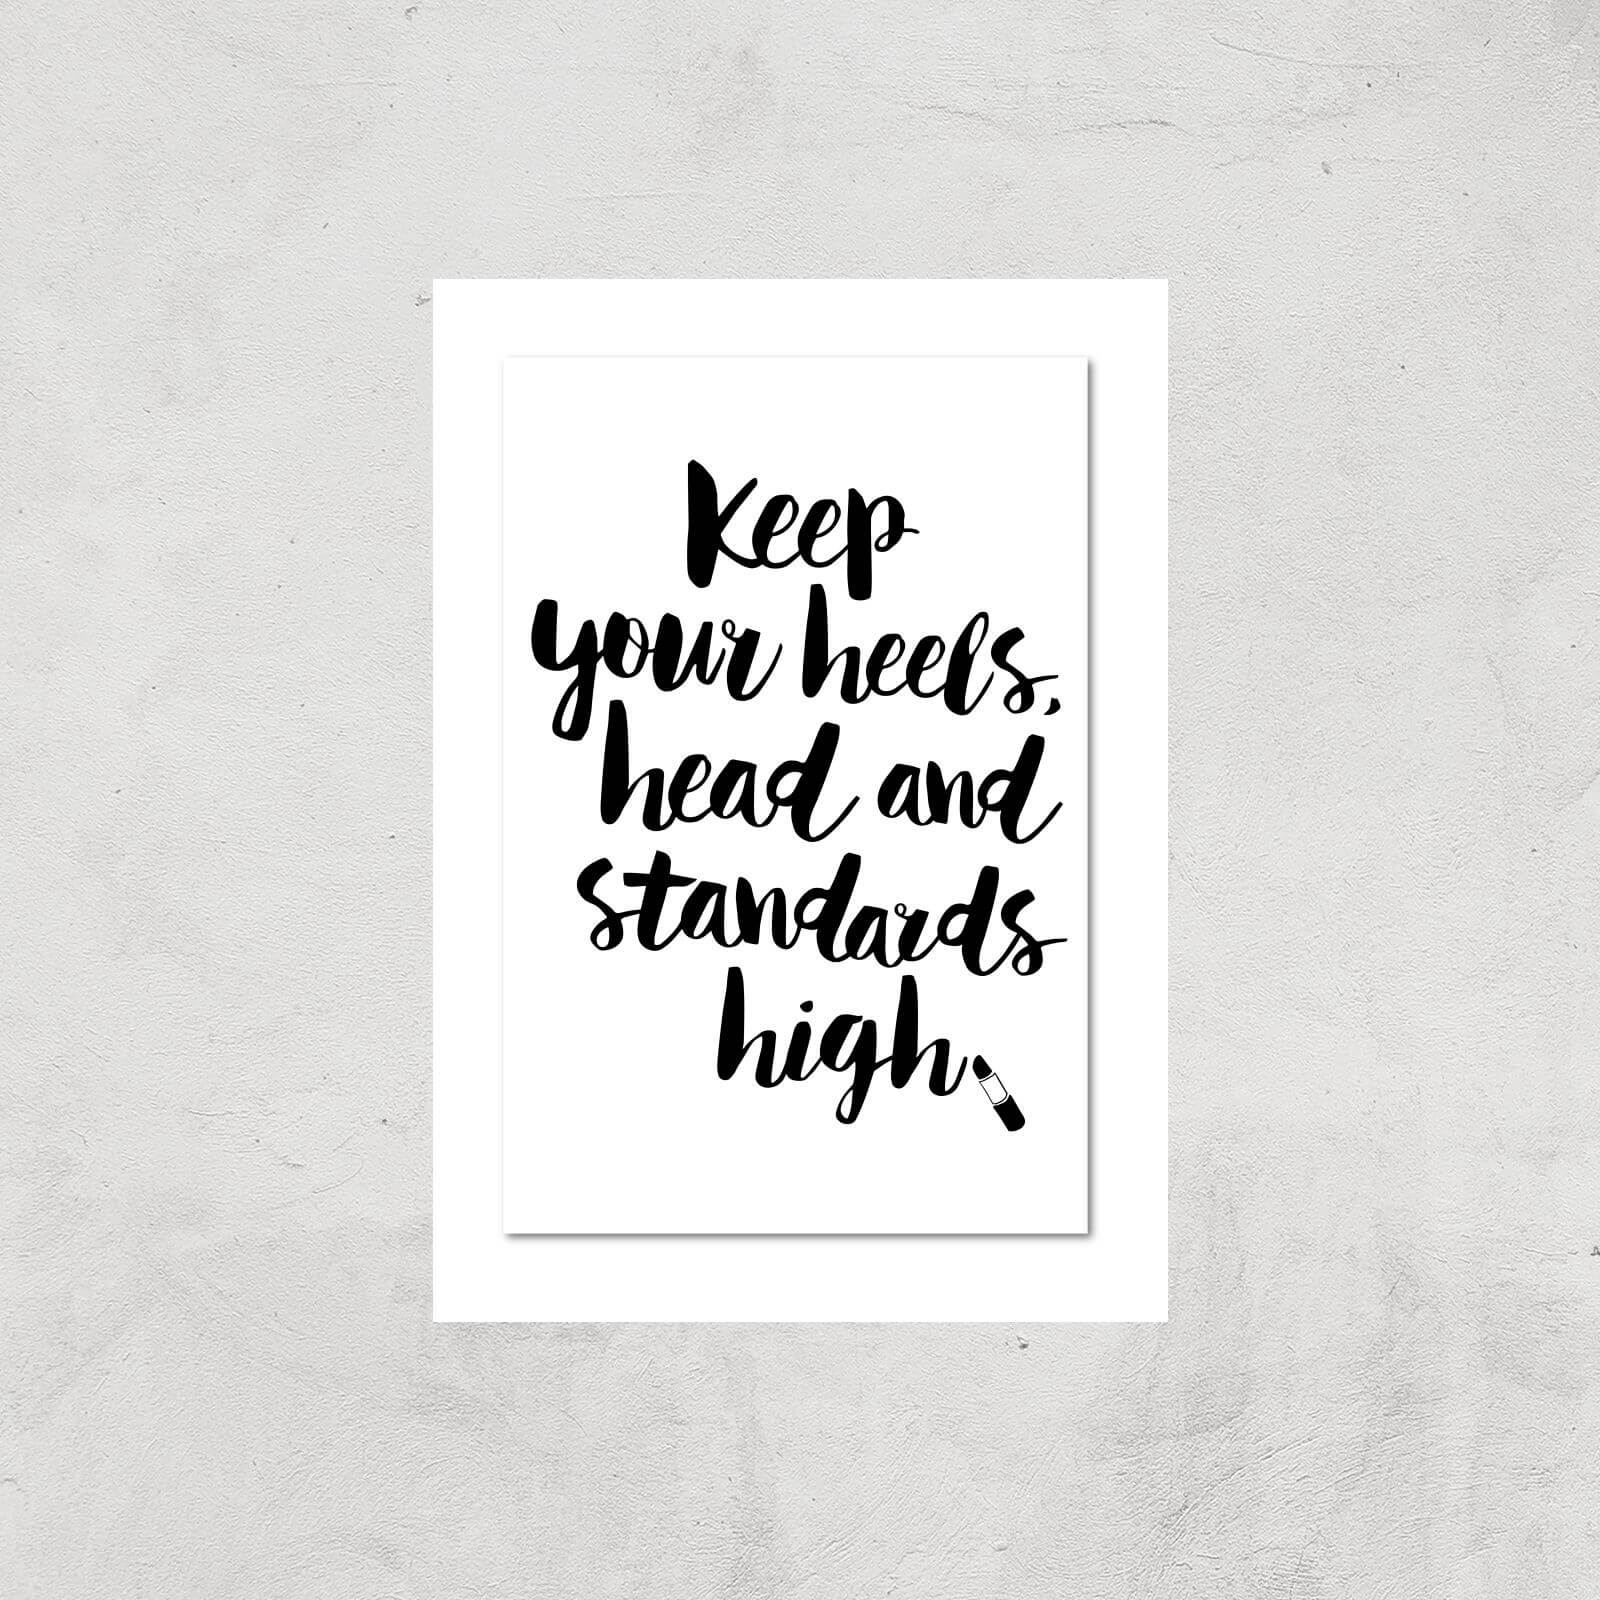 Keep
your heels,
head and
standards
high